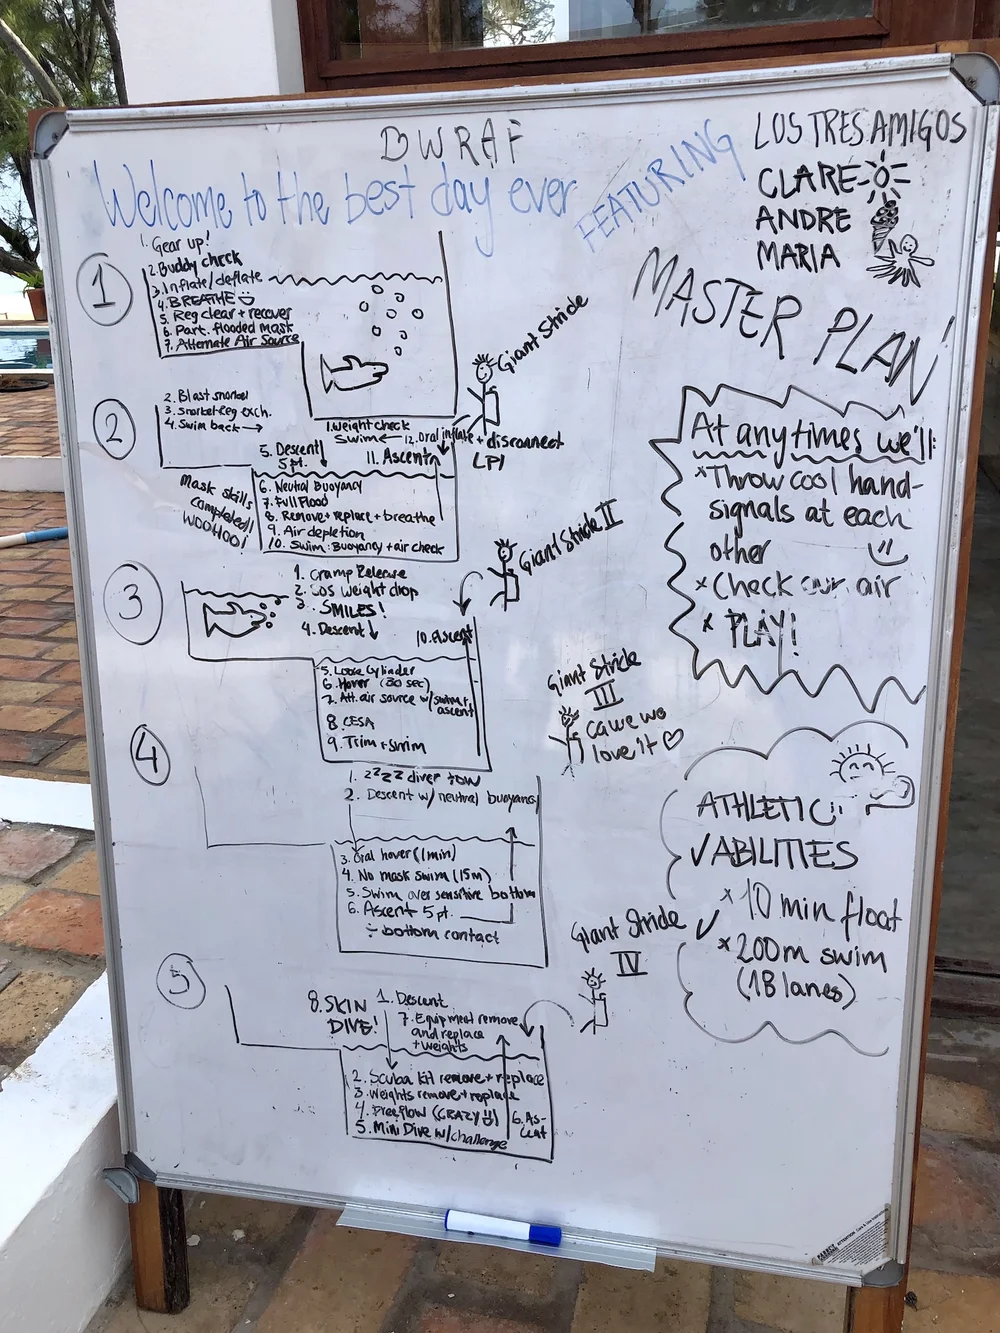 BWRAF
Welcome to the best day ever
FEATURING
LOS TRES AMIGOS
CLARE
ANDRE
MARIA
MASTER PLAN!
1
1. Gear up!
2. Buddy check
3. Inflate/deflate
4. BREATHE
5. Reg clear + recover
6. Part. flooded mask
7. Alternate Air Source
Giant Stride
2
1. Weight check
2. Blast snorkel
3. Snorkel-Reg exch.
4. Swim back →
5. Descent
5 pt.
6. Neutral Buoyancy
7. Full Flood
8. Remove + replace + breathe
9. Air depletion
10. Swim: Buoyancy + air check
11. Ascent
Swim ← 12. Oral inflate + disconnect
LPI
Mask skills
completed!!
WOOHOO!
Giant Stride II
3
1. Cramp Release
2. Sos weight drop
3. SMILES!
4. Descent ↓
5. Loose Cylinder
6. Hover (30 sec)
7. Alt. air source w/swim +
ascent
8. CESA
9. Trim + swim
10. Ascent
Giant Stride
III
love it ♡
4
1. zzzz diver tow
2. Descent w/ neutral buoyancy
3. Oral hover (1min)
4. No mask swim (15m)
5. Swim over sensitive bottom
6. Ascent 5 pt.
÷ bottom contact
Giant Stride
IV
5
1. Descent
2. Scuba kit remove + replace
3. Weights remove + replace
4. Freeflow (CRAZY)
5. Mini Dive w/challenge
6. As-
cent
7. Equipment remove
and replace
+ weights
8. SKIN
DIVE!
At any times we'll:
x Throw cool hand-
signals at each
other
x Check our air
x PLAY!
ATHLETIC
✓ ABILITIES
x 10 min float
✓ x 200m swim
(18 lanes)